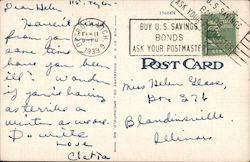 Dear Helen
Haven't
from you
some time
have you been
ill? Wonder
if you're having
as terrible a
winter as
Do write
Love
Cletia
BUY U.S. SAVINGS
BONDS
ASK YOUR POSTMASTER
POST CARD
Miss Helen Glass,
Box 376
Blandinsville
Illinois